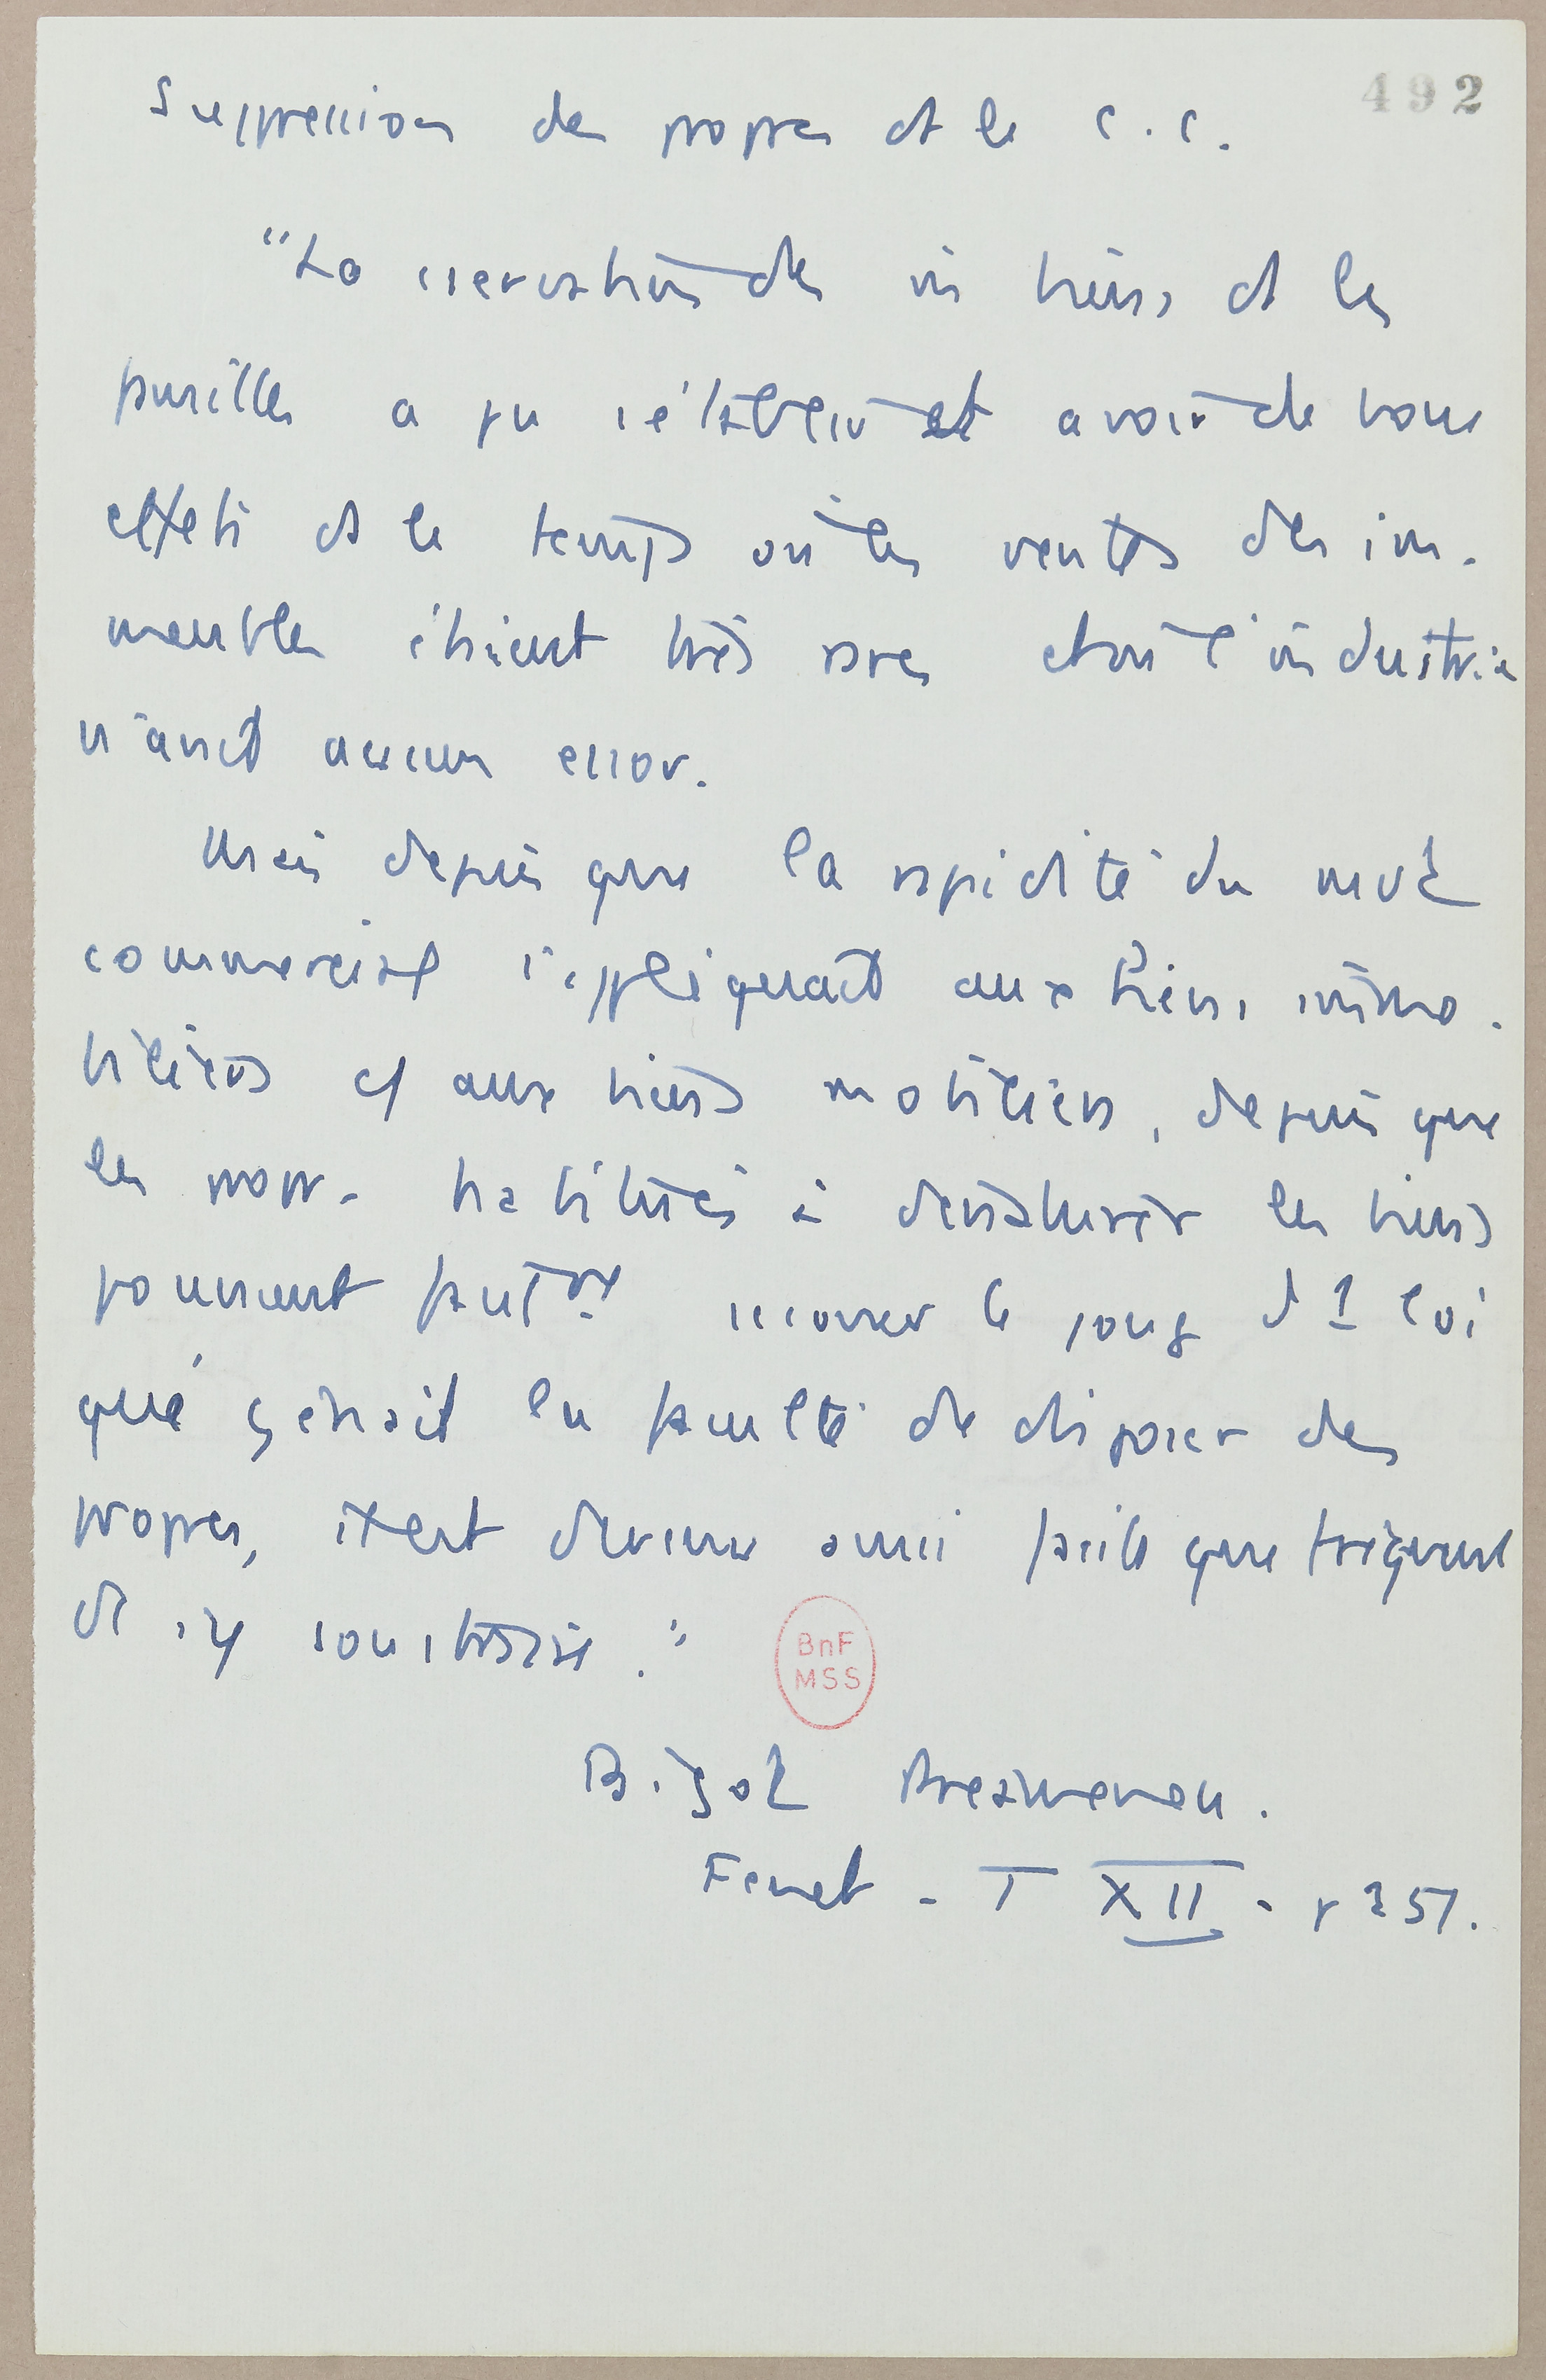 492
Suppression des propres ds le C.C.
"La conservation des biens ds les
familles a pu s'établir et avoir de bons
effets ds le temps où les ventes des im-
meubles étaient très rares et où l'industrie
n'avait aucun essor.
Mais depuis que la rapidité du mvt
commercial s'appliquait aux biens immo-
biliers cf aux biens mobiliers, depuis que
les propr. habitués à dénaturer les biens
pouvaient secouer le joug d'1 loi
qui gênait la faculté de disposer des
propres, il était devenu aussi facile que fréquent
de s'y soustraire."
BnF
MSS
Bigot Préameneu.
Fenet - T XII - p 251.